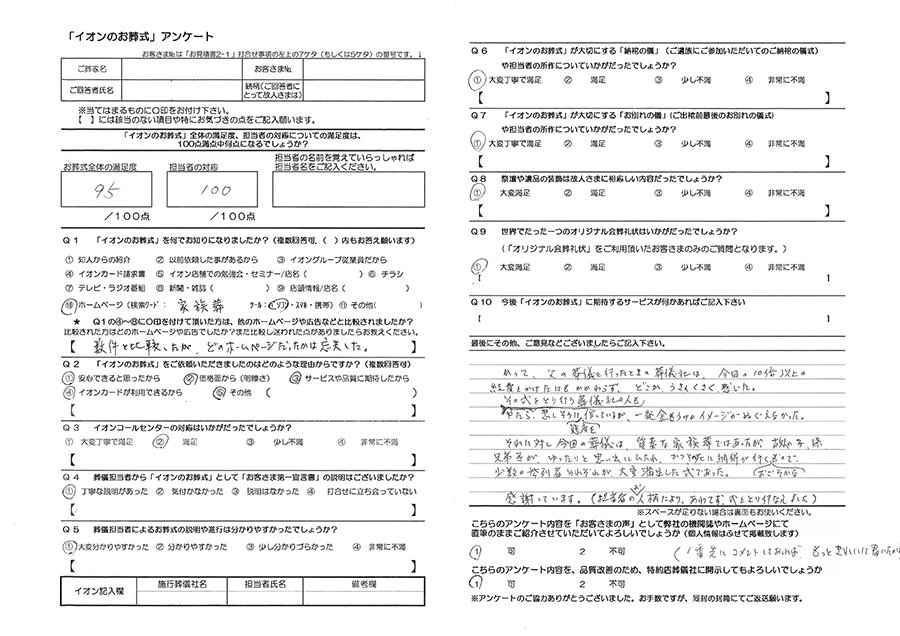 「イオンのお葬式」アンケート
お客さま№は「お見積書2-1」打合せ事項の左上の7ケタ（もしくは5ケタ）の番号です。↓
ご葬家名
お客さま№
ご回答者氏名
続柄（ご回答者に
とって故人さまは）
※当てはまるものに○印をお付け下さい。
【　】には該当のない項目や特にお気づきの点をご記入願います。
「イオンのお葬式」全体の満足度、担当者の対応についての満足度は、
100点満点中何点になるでしょうか？
お葬式全体の満足度
担当者の対応
担当者の名前を覚えていらっしゃれば
担当者名をご記入ください。
95
100
／100点
／100点
Q1 「イオンのお葬式」を何でお知りになりましたか？（複数回答可、（　）内もお答え願います）
① 知人からの紹介 ② 以前依頼した事があるから ③ イオングループ従業員だから
④ イオンカード請求書 ⑤ イオン店舗での勉強会・セミナー/店名（　） ⑥ チラシ
⑦ テレビ・ラジオ番組 ⑧ 新聞・雑誌（　） ⑨ 店頭情報/店名（　）
⑩ ホームページ（検索ワード： 家族葬 ツール：パソコン・スマホ・携帯） ⑪ その他（　）
★ Q1の④～⑧に○印を付けて頂いた方は、他のホームページや広告などと比較されましたか？
比較された方はどのホームページや広告でしたか？また比較し迷われた点がありましたらお教えください。
【 数件と比較したが、どのホームページだったかは忘失した。 】
Q2 「イオンのお葬式」をご依頼いただきましたのはどのような理由からですか？（複数回答可）
① 安心できると思ったから ② 価格面から（明瞭さ） ③ サービスや品質に期待したから
④ イオンカードが利用できるから ⑤ その他（
【　】
Q3 イオンコールセンターの対応はいかがだったでしょうか？
① 大変丁寧で満足 ② 満足 ③ 少し不満 ④ 非常に不満
【　】
Q4 葬儀担当者から「イオンのお葬式」として「お客さま第一宣言書」の説明はございましたか？
① 丁寧な説明があった ② 気付かなかった ③ 説明はなかった ④ 打合せに立ち会っていない
【　】
Q5 葬儀担当者によるお葬式の説明や進行は分かりやすかったでしょうか？
① 大変分かりやすかった ② 分かりやすかった ③ 少し分かりづらかった ④ 非常に不満
【　】
イオン記入欄
施行葬儀社名
担当者氏名
備考欄
Q6 「イオンのお葬式」が大切にする「納棺の儀」（ご遺族にご参加いただいてのご納棺の儀式）
や担当者の所作についていかがだったでしょうか？
① 大変丁寧で満足 ② 満足 ③ 少し不満 ④ 非常に不満
【　】
Q7 「イオンのお葬式」が大切にする「お別れの儀」（ご出棺前最後のお別れの儀式）
や担当者の所作についていかがだったでしょうか？
① 大変丁寧で満足 ② 満足 ③ 少し不満 ④ 非常に不満
【　】
Q8 祭壇や遺品の装飾は故人さまに相応しい内容だったでしょうか？
① 大変満足 ② 満足 ③ 少し不満 ④ 非常に不満
【　】
Q9 世界でたった一つのオリジナル会葬礼状はいかがだったでしょうか？
（「オリジナル会葬礼状」をご利用頂いたお客さまのみのご質問となります。）
① 大変満足 ② 満足 ③ 少し不満 ④ 非常に不満
【　】
Q10 今後「イオンのお葬式」に期待するサービスが何かあればご記入下さい
【　】
最後にその他、ご意見などございましたらご記入下さい。
かつて、父の葬儀を行ったときの葬儀社は、今回の10倍以上の
経費をかけたにもかかわらず、どこか、うさんくさく、感じた。
その式をとり行う葬儀社の人も
やたら、悲しそうな 作っているが、一発金もうけのイメージがぬぐえなかった。
態度を
それに対し今回の葬儀は、質素な家族葬ではあったが、故人の子、孫、
兄弟等が、ゆったりと思い出にひたれ、かつ 納得が行くもので、
少数の参列者それぞれが、大変満足した式であった。
おごそかな
感謝しています。（担当者の人柄により、 式をとり行なえました）
※スペースが足りない場合は裏面もお使いください。
こちらのアンケート内容を「お客さまの声」として弊社の機関誌やホームページにて
直筆のままご紹介させていただいてよろしいでしょうか（個人情報はふせて掲載致します）
1 可 2 不可 （1番先にコメントしてあれば、もっと
こちらのアンケート内容を、品質改善のため、特約店葬儀社に開示してもよろしいでしょうか
1 可 2 不可
※アンケートのご協力ありがとうございました。お手数ですが、同封の封筒にてご返送願います。